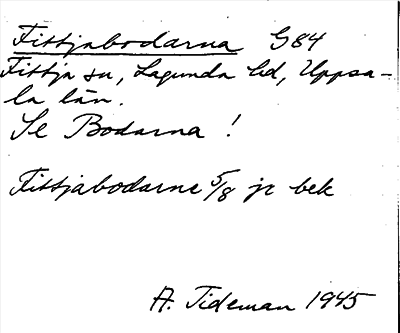 Fittjabodarna G84
Fittja sn, Lagunda hd, Uppsa-
la län.
Se Bodarna!
Fittjabodarne 5/8 jr bek
A. Tideman 1945